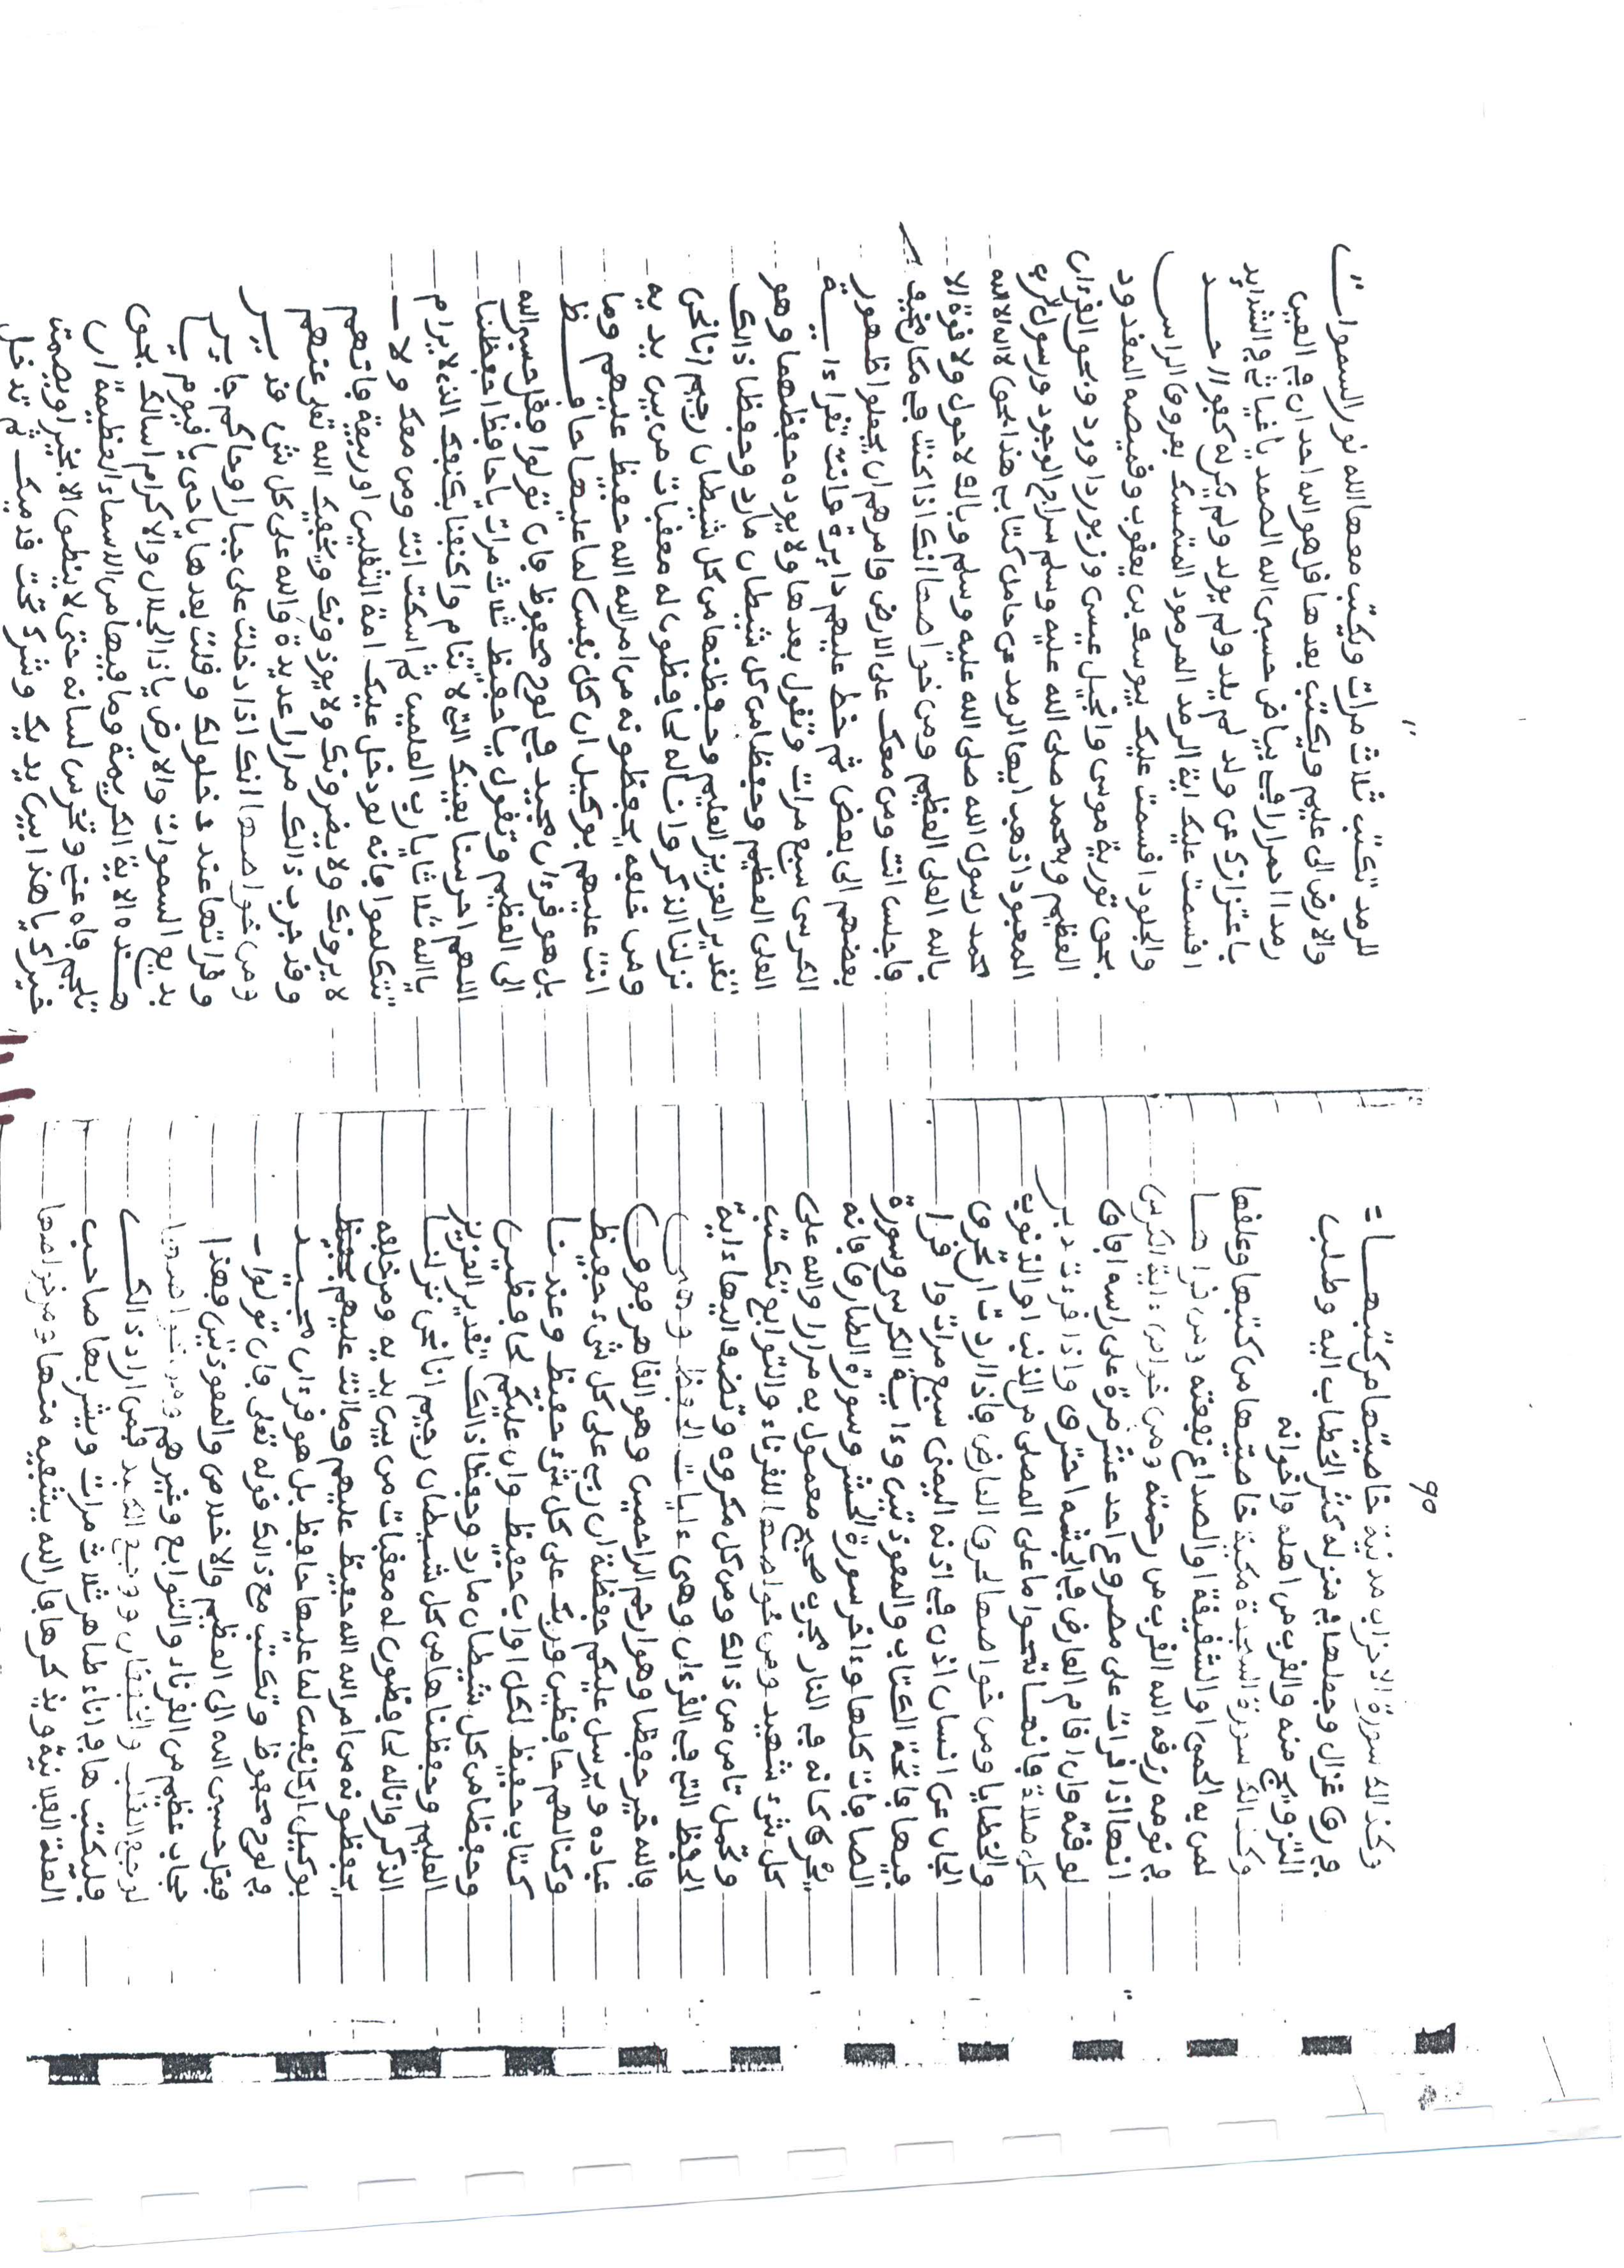 90
وكذالك سورة الاحزاب مدنية خاصيتها من كتبهـــا =
في رق غزال وجعلها في منزله كثر الخطاب اليه وطلب
التزويج منه والقرب من اهله واخوانه
وكذالك سورة السجدة مكية خاصيتها من كتبها وعلقها
لمن به الحمى او الشقيقة او الصداع نفعته ومن قراهــا
في نومه رزقه الله القرب من رحمته ومن خواص ءاية الكرسي
انها اذا قرات على مصروع احد عشر مرة على راسه افاق
لوقته وان اقام العارض في الجثة احترق واذا قرءت دبر
كل صلاة فانهــا تمحوا ما على المصلى من الذنب او الذنوب
والخطايا ومن خواصها لحرق العارض فاذا اردت ان تحرق
الجان عن انسان اذن في اذنه اليمنى سبع مرات واقرا
فيها فاتحة الكتاب والمعوذتين وءاية الكرسي وسورة
الصافات كلها وءاخر سورة الحشر وسورة الطارق فانه
يحرق كانه في النار مجرب صحيح معمول به مرارا والله على
كل شيء شهيد ومن خواصها للقرناء والتوابع تكتب
وتحمل تامن من ذالك ومن كل مكروه وتضف اليها ءاية
الحفظ التي في القرءان وهي ءايات الحفظ وهي
فالله خير حفظا وهو ارحم الراحمين وهو القاهر فوق
عباده ويرسل عليكم حفظة ان ربي على كل شيء حفيظ
وكنا لهم حافظين وربك على كل شيء حفيظ وعندنــا
كتاب حفيظ لكل اواب حفيظ وان عليكم لحافظين
وحفظا من كل شيطان مارد وحفظا ذالك تقدير العزيز
العليم وحفظناها من كل شيطان رجيم انا نحن نزلنــا
الذكر وانا له لحافظون له معقبات من بين يديه ومن خلفه
يحفظونه من امر الله الله حفيظ عليهم وما انت عليهم بحفيظ
بوكيل ان كل نفس لما عليها حافظ بل هو قرءان مجيــد
في لوح محفوظ وتكتب مع ذالك قوله تعلى فان تولوا
فقل حسبى الله الى العظيم والاخلاص والمعوذتين فهذا
حجاب عظيم من القرناء والتوابع وغيرهم ومن خواصها
لوجع القلب والخفقان ووجع الكبد فمن اراد ذالكــ
فليكتبها في اناء طاهر ثلاث مرات ويشربها صاحب
العلة الفلانية ويذكرها فان الله يشفيه منها ومن خواصها
للرمد تكتب ثلاث مرات ويكتب معها الله نور السموات
والارض الى عليم ويكتب بعدها قل هو الله احد ان في العين
رمدا احمرارا في بياض حسبى الله الصمد يا غياثي في الشدايد
باعتزازى عن ولد لم يلد ولم يولد ولم يكن له كفوا احــد
اقسمت عليك اية الرمد المرمود المتمسك بعروق الراس
والجلود اقسمت عليك بيوسف بن يعقوب وقميصه المقدود
بحق تورية موسى وانجيل عيسى وزبور داوود وبحق القرءان
العظيم وبمحمد صلى الله عليه وسلم سراج الوجود ورسول الرب
المعبود اذهب ايها الرمد عن حامل كتاب هذا بحق لا اله الا الله
محمد رسول الله صلى الله عليه وسلم وبالف لا حول ولا قوة الا
بالله العلى العظيم ومن خواصها انك اذا كنت في مكان مخيف
فاجلس انت ومن معك على الارض وامرهم ان يجعلوا ظهور
بعضهم الى بعض ثم خط عليهم دايرة وانت تقرا ءايــة
الكرسى سبع مرات وتقول بعدها ولا يوده حفظهما وهو
العلى العظيم وحفظا من كل شيطان مارد وحفظا ذالك
تقدير العزيز العليم وحفظنها من كل شيطان رجيم انا نحن
نزلنا الذكر وانا له لحافظون له معقبات من بين يديه
ومن خلفه يحفظونه من امر الله الله حفيظ عليهم وما
انت عليهم بوكيل ان كل نفس لما عليها حافـــظ
بل هو قرءان مجيد في لوح محفوظ فان تولوا فقل حسبى الله
الى العظيم وتقول يا حفيظ ثلاث مرات يا حافظ احفظنا
اللهم احرسنا بعينك التي لا تنام واكنفنا بكنفك الذى لا يرام
يا الله ثلاثا يا رب العلمين ثم اسكت انت ومن معك ولا
تتكلموا فانه لو دخل عليك امة الثقلين او ربيعة فانهم
لا يرونك ولا يضرونك ولا يوذونك ويخفيك الله تعلى عنهم
وقد جرب ذالك مرارا عديدة والله على كل شي قديــر
ومن خواصها انك اذا دخلت على جبار او حاكم جاير
وقراتها عند دخولك وقلت بعدها يا حى يا قيوم يا
بديع السموات والارض يا ذا الجلال والاكرام اسالك بحق
هــذه الاية الكريمة وما فيها من الاسماء العظيمة ان
تلجم فاه عنى وتخرس لسانه حتى لا ينطق الا بخير او يصمت
خيرك يا هذا بين يديك وشرك تحت قدميك ثم تدخل